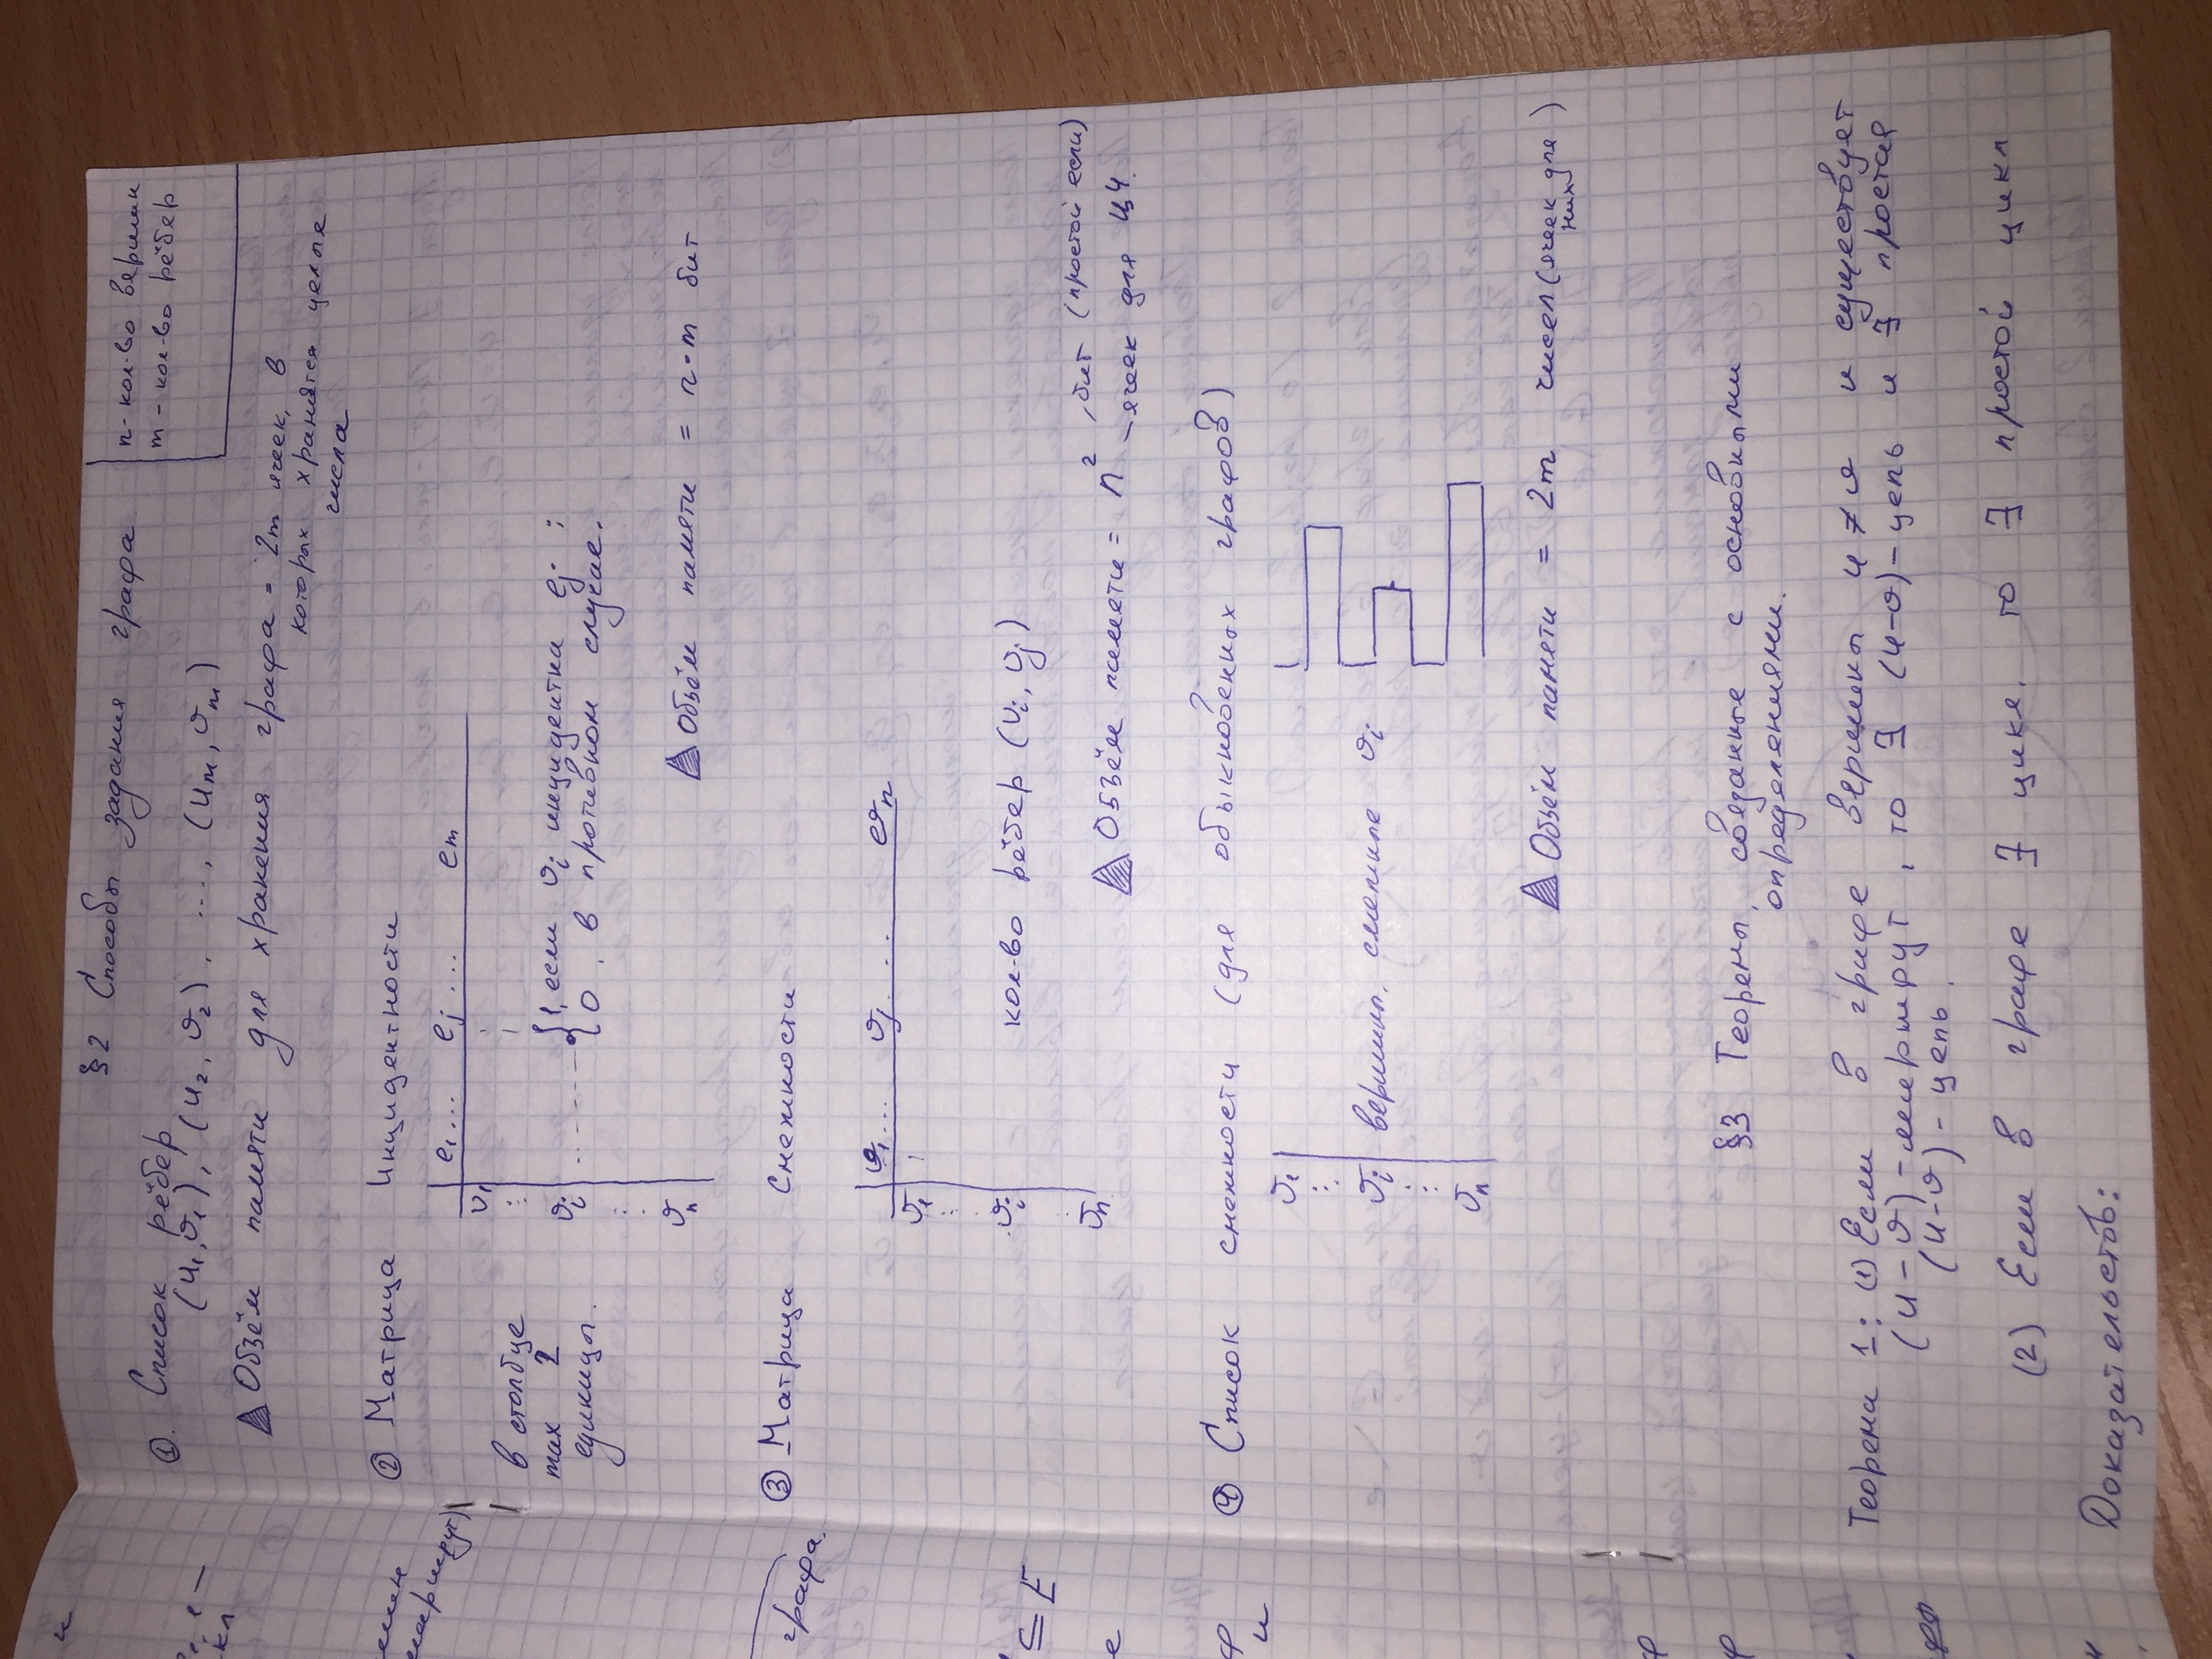 §2 Способы задания графа
n - кол-во вершин
m - кол-во рёбер
① Список рёбер
(u₁,v₁), (u₂,v₂), ..., (uₘ,vₘ)
Объём памяти для хранения графа = 2m ячеек, в
которых хранятся целые
числа
② Матрица Инцидентности
e₁ ... eⱼ ... eₘ
v₁
⋮
в столбце
max 2
единицы.
vᵢ
1, если vᵢ инцидентна eⱼ ;
0, в противном случае.
vₙ
Объём памяти = n·m бит
③ Матрица Смежности
v₁ ... vⱼ ... vₙ
v₁
⋮
vᵢ кол-во рёбер (vᵢ, vⱼ)
vₙ
Объём памяти = n² , бит (простой если)
- ячеек для ЦЧ.
④ Список смежности (для обыкновенных графов)
v₁
⋮
vᵢ вершины, смежные vᵢ
⋮
vₙ
Объём памяти = 2m чисел (ячеек для них)
§3 Теоремы, связанные с основными
определениями.
Теорема 1: (1) Если в графе вершины u ≠ v и существует
(u-v)-маршрут, то ∃ (u-v)-цепь и ∃ простая
(u-v)-цепь.
(2) Если в графе ∃ цикл, то ∃ простой цикл
Доказательстов:
маршрут)
графа.
⊆ E